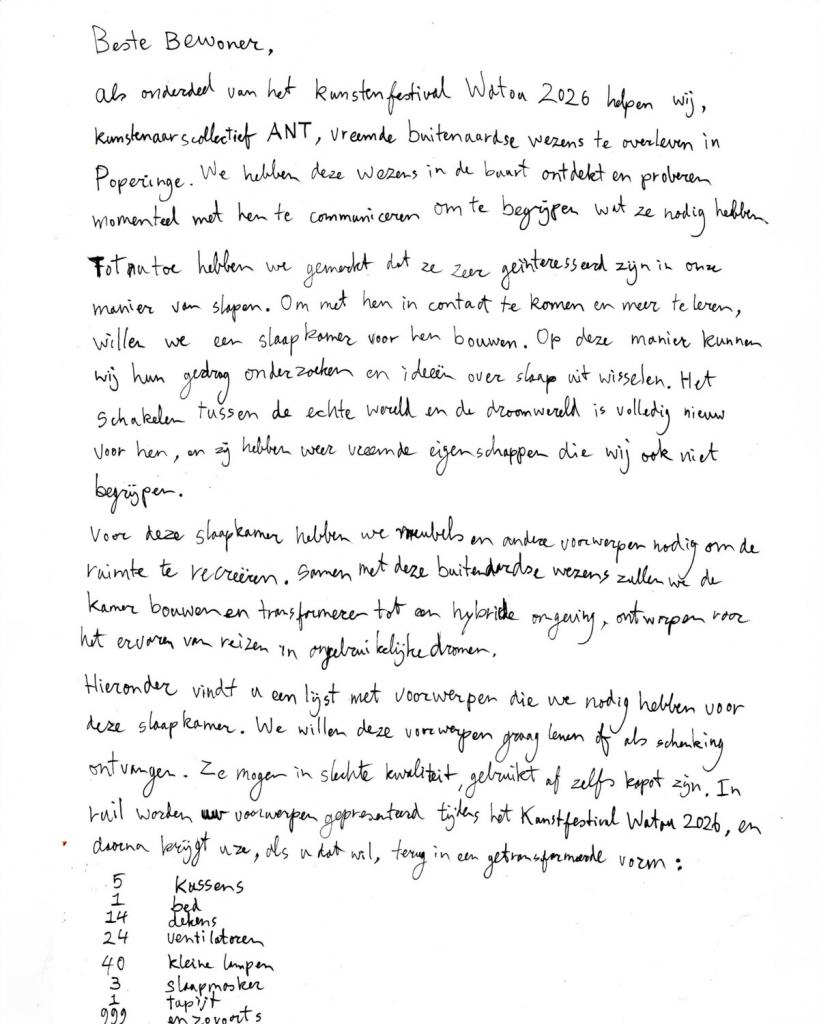 Beste Bewoner,
als onderdeel van het kunstenfestival Watou 2026 helpen wij,
kunstenaarscollectief ANT, vreemde buitenaardse wezens te overleven in
Poperinge. We hebben deze wezens in de buurt ontdekt en proberen
momenteel met hen te communiceren om te begrijpen wat ze nodig hebben.
Tot nu toe hebben we gemerkt dat ze zeer geïnteresseerd zijn in onze
manier van slapen. Om met hen in contact te komen en meer te leren,
willen we een slaapkamer voor hen bouwen. Op deze manier kunnen
wij hun gedrag onderzoeken en ideeën over slaap uit wisselen. Het
schakelen tussen de echte wereld en de droomwereld is volledig nieuw
voor hen, en zij hebben weer vreemde eigenschappen die wij ook niet
begrijpen.
Voor deze slaapkamer hebben we meubels en andere voorwerpen nodig om de
ruimte te recreëren. Samen met deze buitenaardse wezens zullen we de
kamer bouwen en transformeren tot een hybride omgeving, ontworpen voor
het ervaren van reizen in ongebruikelijke dromen.
Hieronder vindt u een lijst met voorwerpen die we nodig hebben voor
deze slaapkamer. We willen deze voorwerpen graag lenen of als schenking
ontvangen. Ze mogen in slechte kwaliteit, gebruikt of zelfs kapot zijn. In
ruil worden uw voorwerpen gepresenteerd tijdens het Kunstfestival Watou 2026, en
daarna krijgt u ze, als u dat wil, terug in een getransformeerde vorm:
5 kussens
1 bed
14 dekens
24 ventilatoren
40 kleine lampen
3 slaapmasker
1 tapijt
999 enzovoorts